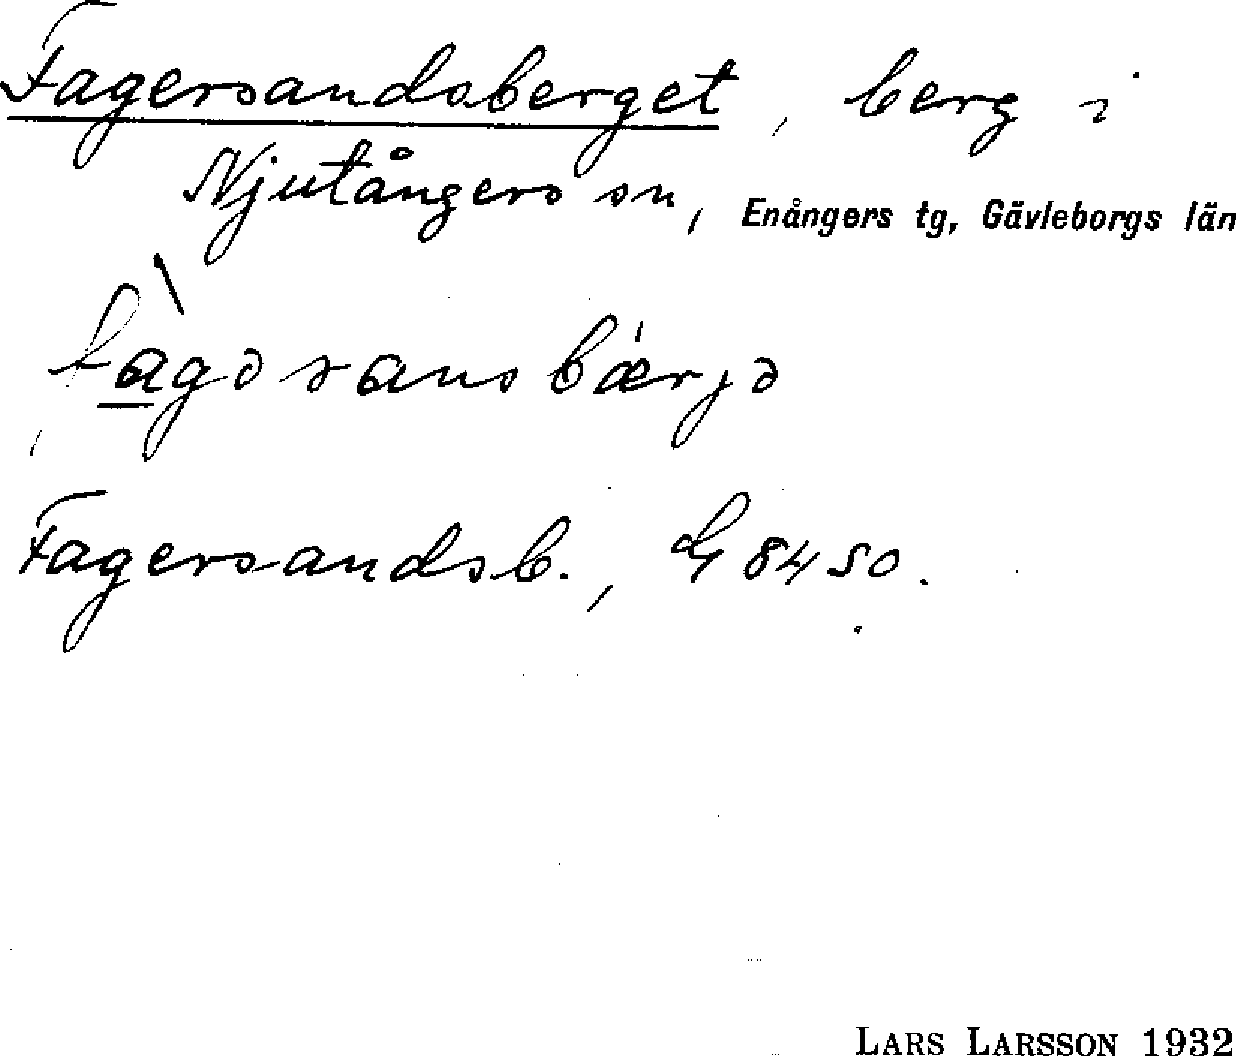 Fagersandsberget, berg i
Njutångers sn, Enångers tg, Gävleborgs län
fàgəsansbǽrjə
Fagersandsb., G 8450.
LARS LARSSON 1932